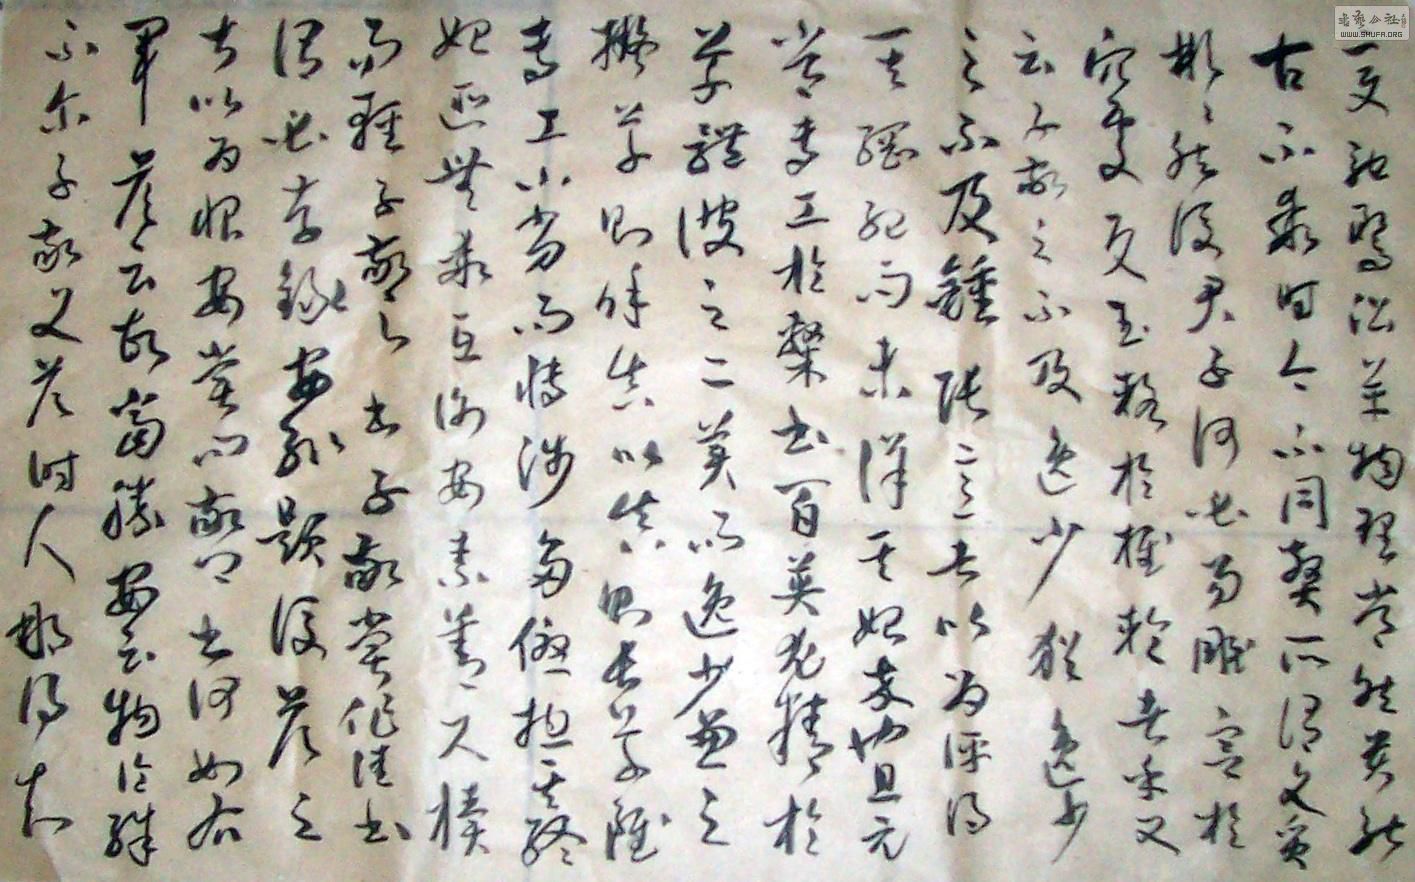 一變馳騖沿革物理常然貴能
古不乖時今不同弊所謂文質
彬彬然後君子何必易雕宮於
穴處反玉輅於椎輪者乎又
云子敬之不及逸少猶逸少
之不及鍾張意者以為評得
其綱紀而未詳其始卒也且元
常專工於隸書百英尤精於
草體彼之二美而逸少兼之
擬草則餘真比真則長草雖
專工小劣而博涉多優摠其終
始匪無乖互謝安素善尺牘
而輕子敬之書子敬嘗作佳書
謂必存錄安輒題後答之
甚以為恨安嘗問敬卿書何如右
軍答云故當勝安云物論殊
不爾子敬又答時人那得知
WWW.SHUFA.ORG